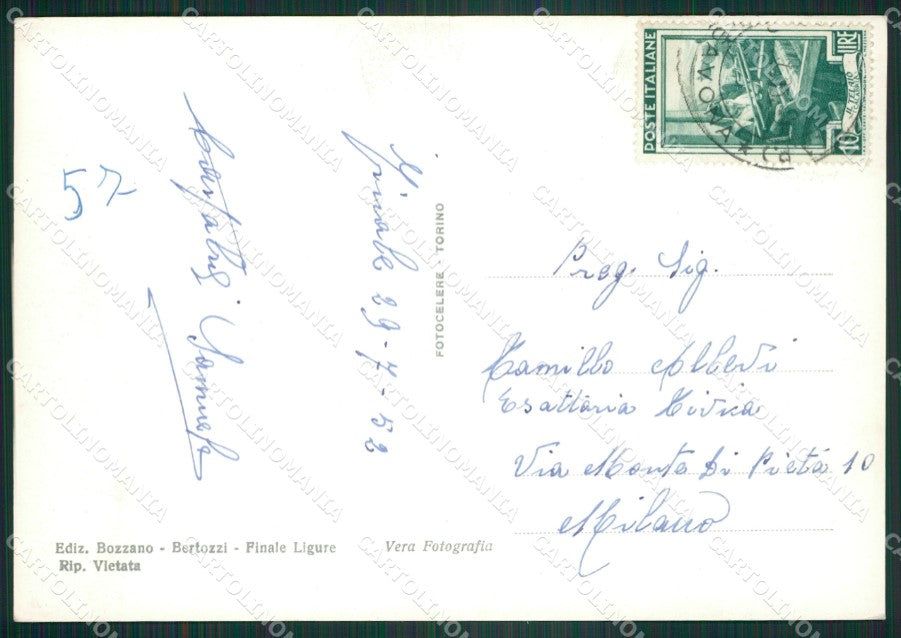 57
Finale 29-7-52
FOTOCELERE - TORINO
POSTE ITALIANE
LIRE
10
Preg. Sig.
Camillo Alberti
Esattoria Civica
Via Monte di Pietà 10
Milano
Ediz. Bozzano - Bertozzi - Finale Ligure
Rip. Vietata
Vera Fotografia
CARTOLINOMANIA